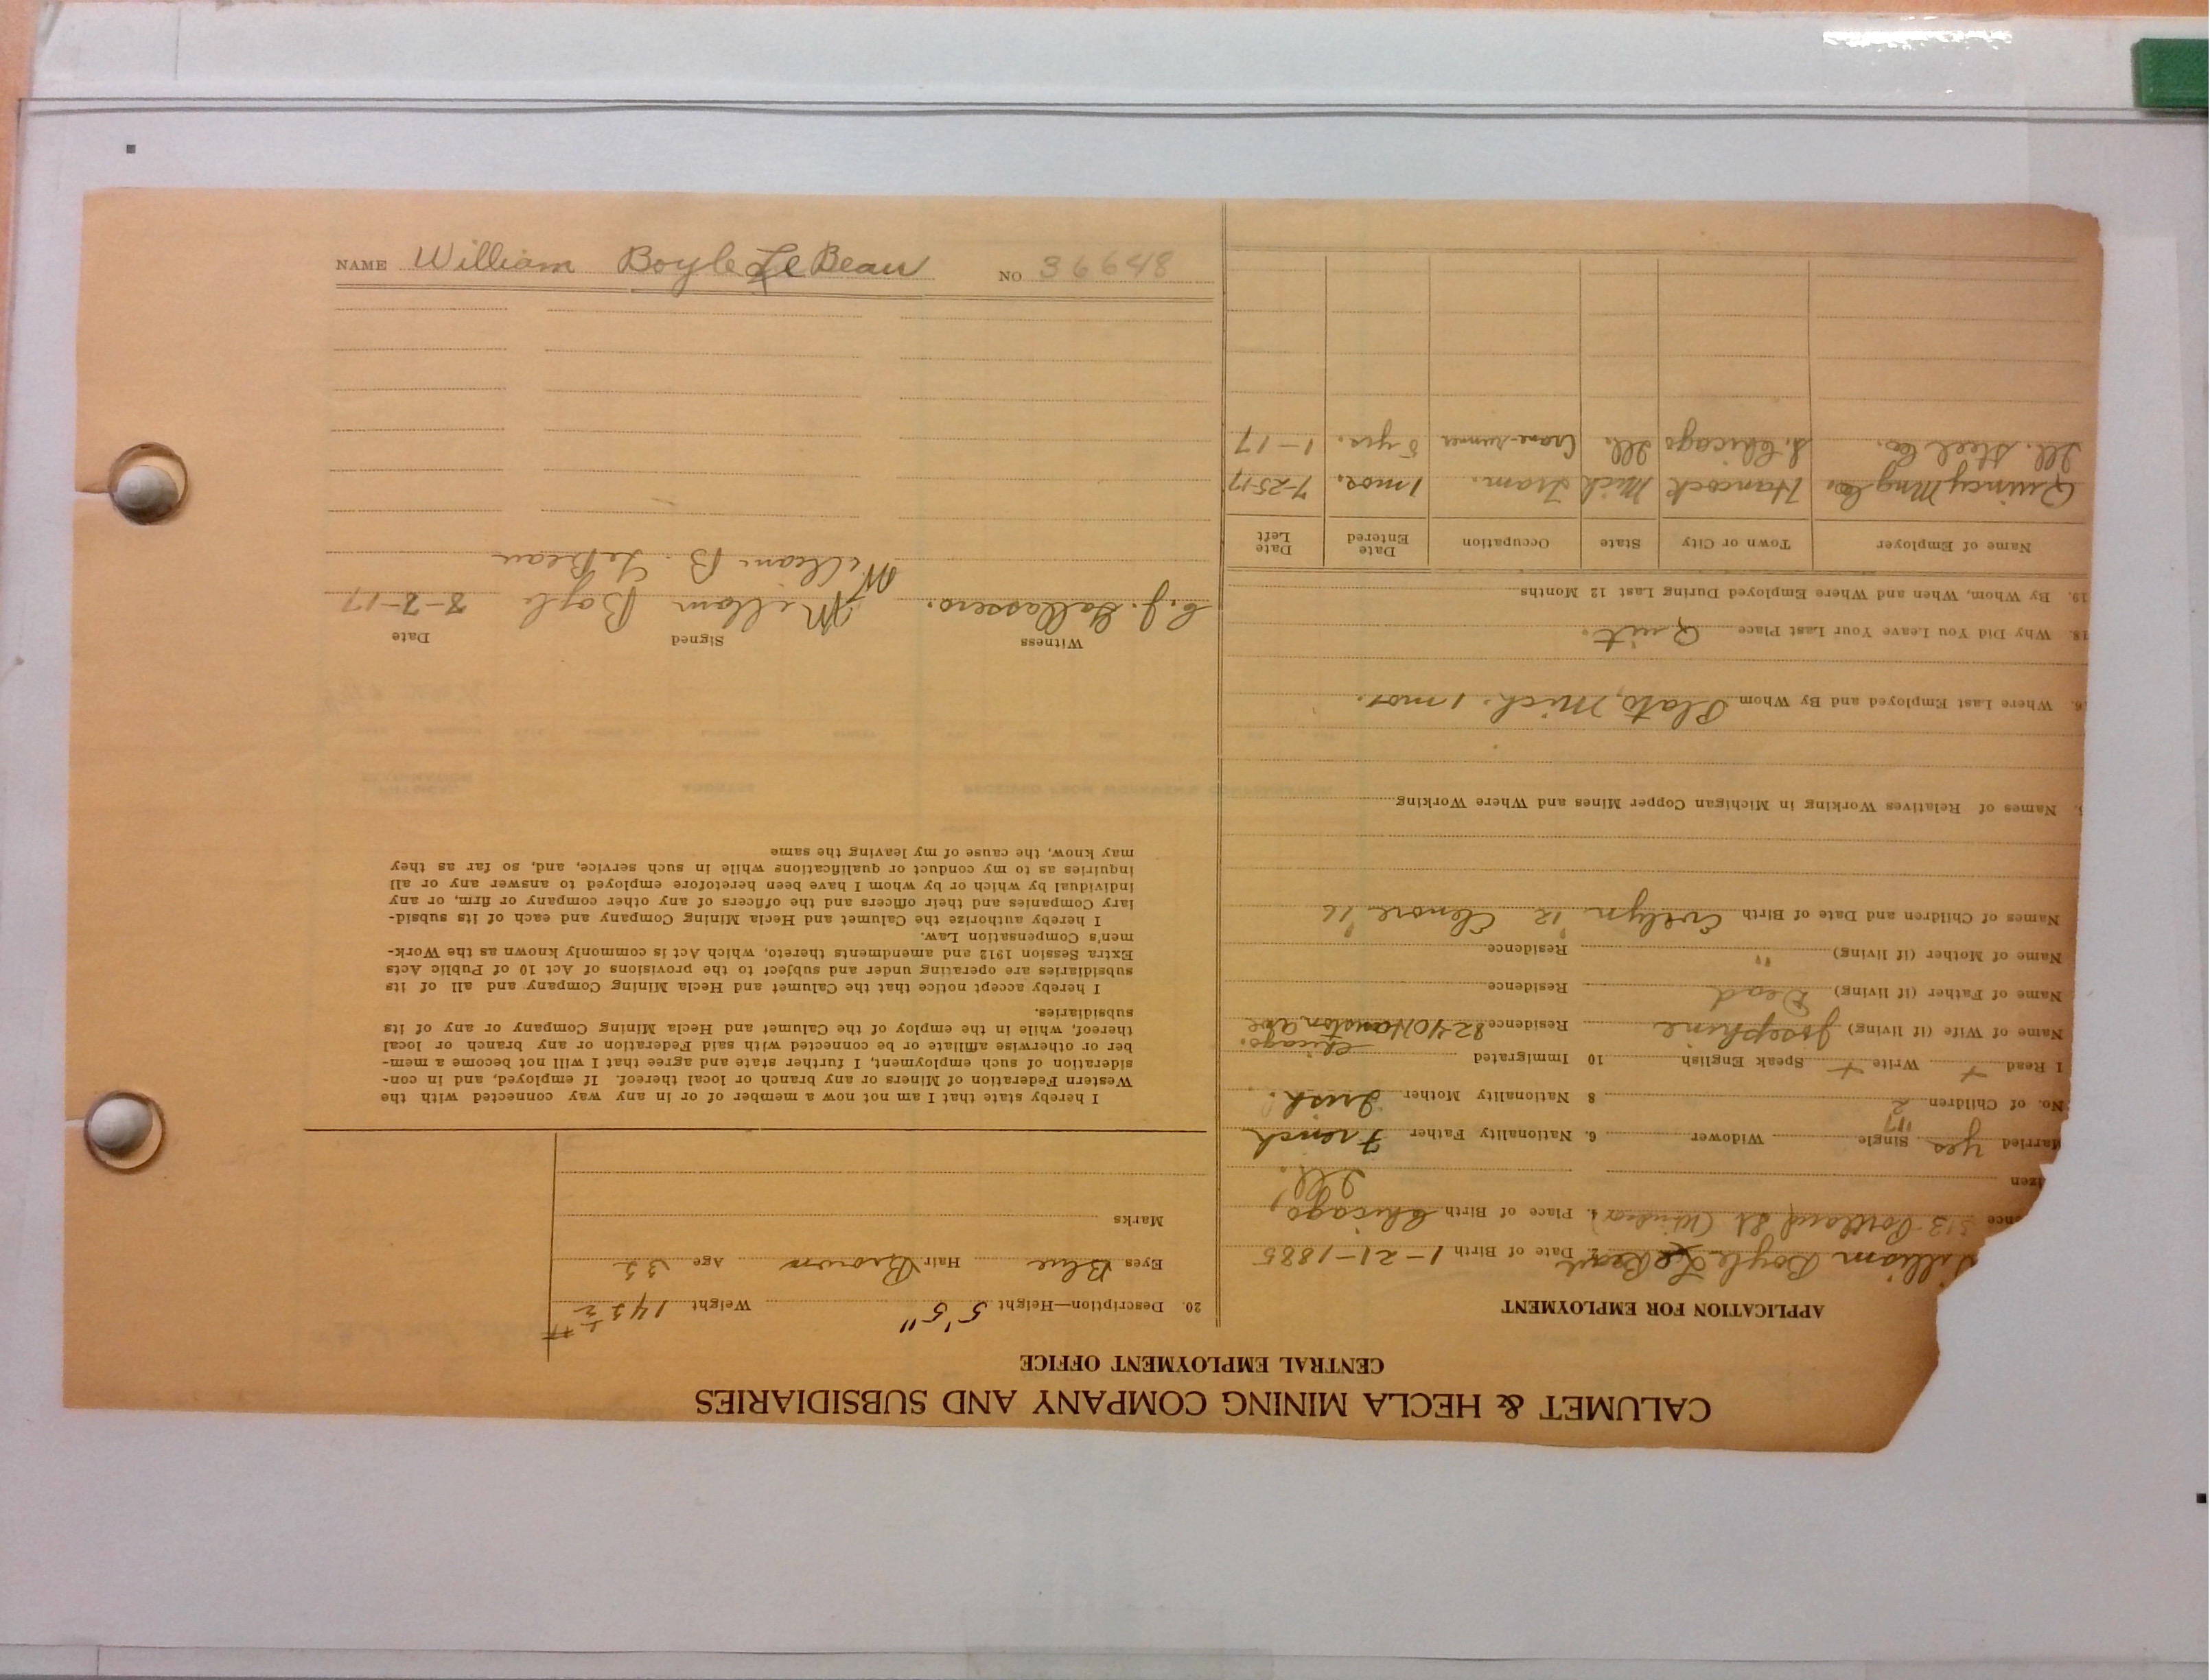 CALUMET & HECLA MINING COMPANY AND SUBSIDIARIES
CENTRAL EMPLOYMENT OFFICE
APPLICATION FOR EMPLOYMENT
William Boyle LeBeau 2 Date of Birth 1-21-1885
313 Portland St (Windsor) 4. Place of Birth Chicago,
Ill.
Married yes Single Widower 6. Nationality Father French
'17
No. of Children 2 8 Nationality Mother Irish.
I Read + Write + Speak English 10 Immigrated
Name of Wife (if living) Josephine Residence 8240 Houston Ave
Chicago.
Name of Father (if living) Dead Residence
Name of Mother (if living) " Residence
Names of Children and Date of Birth Evelyn '12 Elenore '16
Names of Relatives Working in Michigan Copper Mines and Where Working
6. Where Last Employed and By Whom Mich. 1 mos.
18. Why Did You Leave Your Last Place Quit.
19. By Whom, When and Where Employed During Last 12 Months
Name of Employer Town or City State Occupation Date Entered Date Left
Quincy Mng Co. Hancock Mich Tram. 1 mos. 7-25-17
Ill. Steel Co. S. Chicago Ill. Crane-runner 5 yrs. 1-17
20. Description—Height 5'5" Weight 142½ #
Eyes Blue Hair Brown Age 32
Marks
I hereby state that I am not now a member of or in any way connected with the
Western Federation of Miners or any branch or local thereof. If employed, and in con-
sideration of such employment, I further state and agree that I will not become a mem-
ber or otherwise affiliate or be connected with said Federation or any branch or local
thereof, while in the employ of the Calumet and Hecla Mining Company or any of its
subsidiaries.
I hereby accept notice that the Calumet and Hecla Mining Company and all of its
subsidiaries are operating under and subject to the provisions of Act 10 of Public Acts
Extra Session 1912 and amendments thereto, which Act is commonly known as the Work-
men's Compensation Law.
I hereby authorize the Calumet and Hecla Mining Company and each of its subsid-
iary Companies and their officers and the officers of any other company or firm, or any
individual by which or by whom I have been heretofore employed to answer any or all
inquiries as to my conduct or qualifications while in such service, and, so far as they
may know, the cause of my leaving the same
Witness Signed Date
C. J. Gallassero. William Boyle 8-8-17
William B. LeBeau
NAME William Boyle LeBeau NO 36648